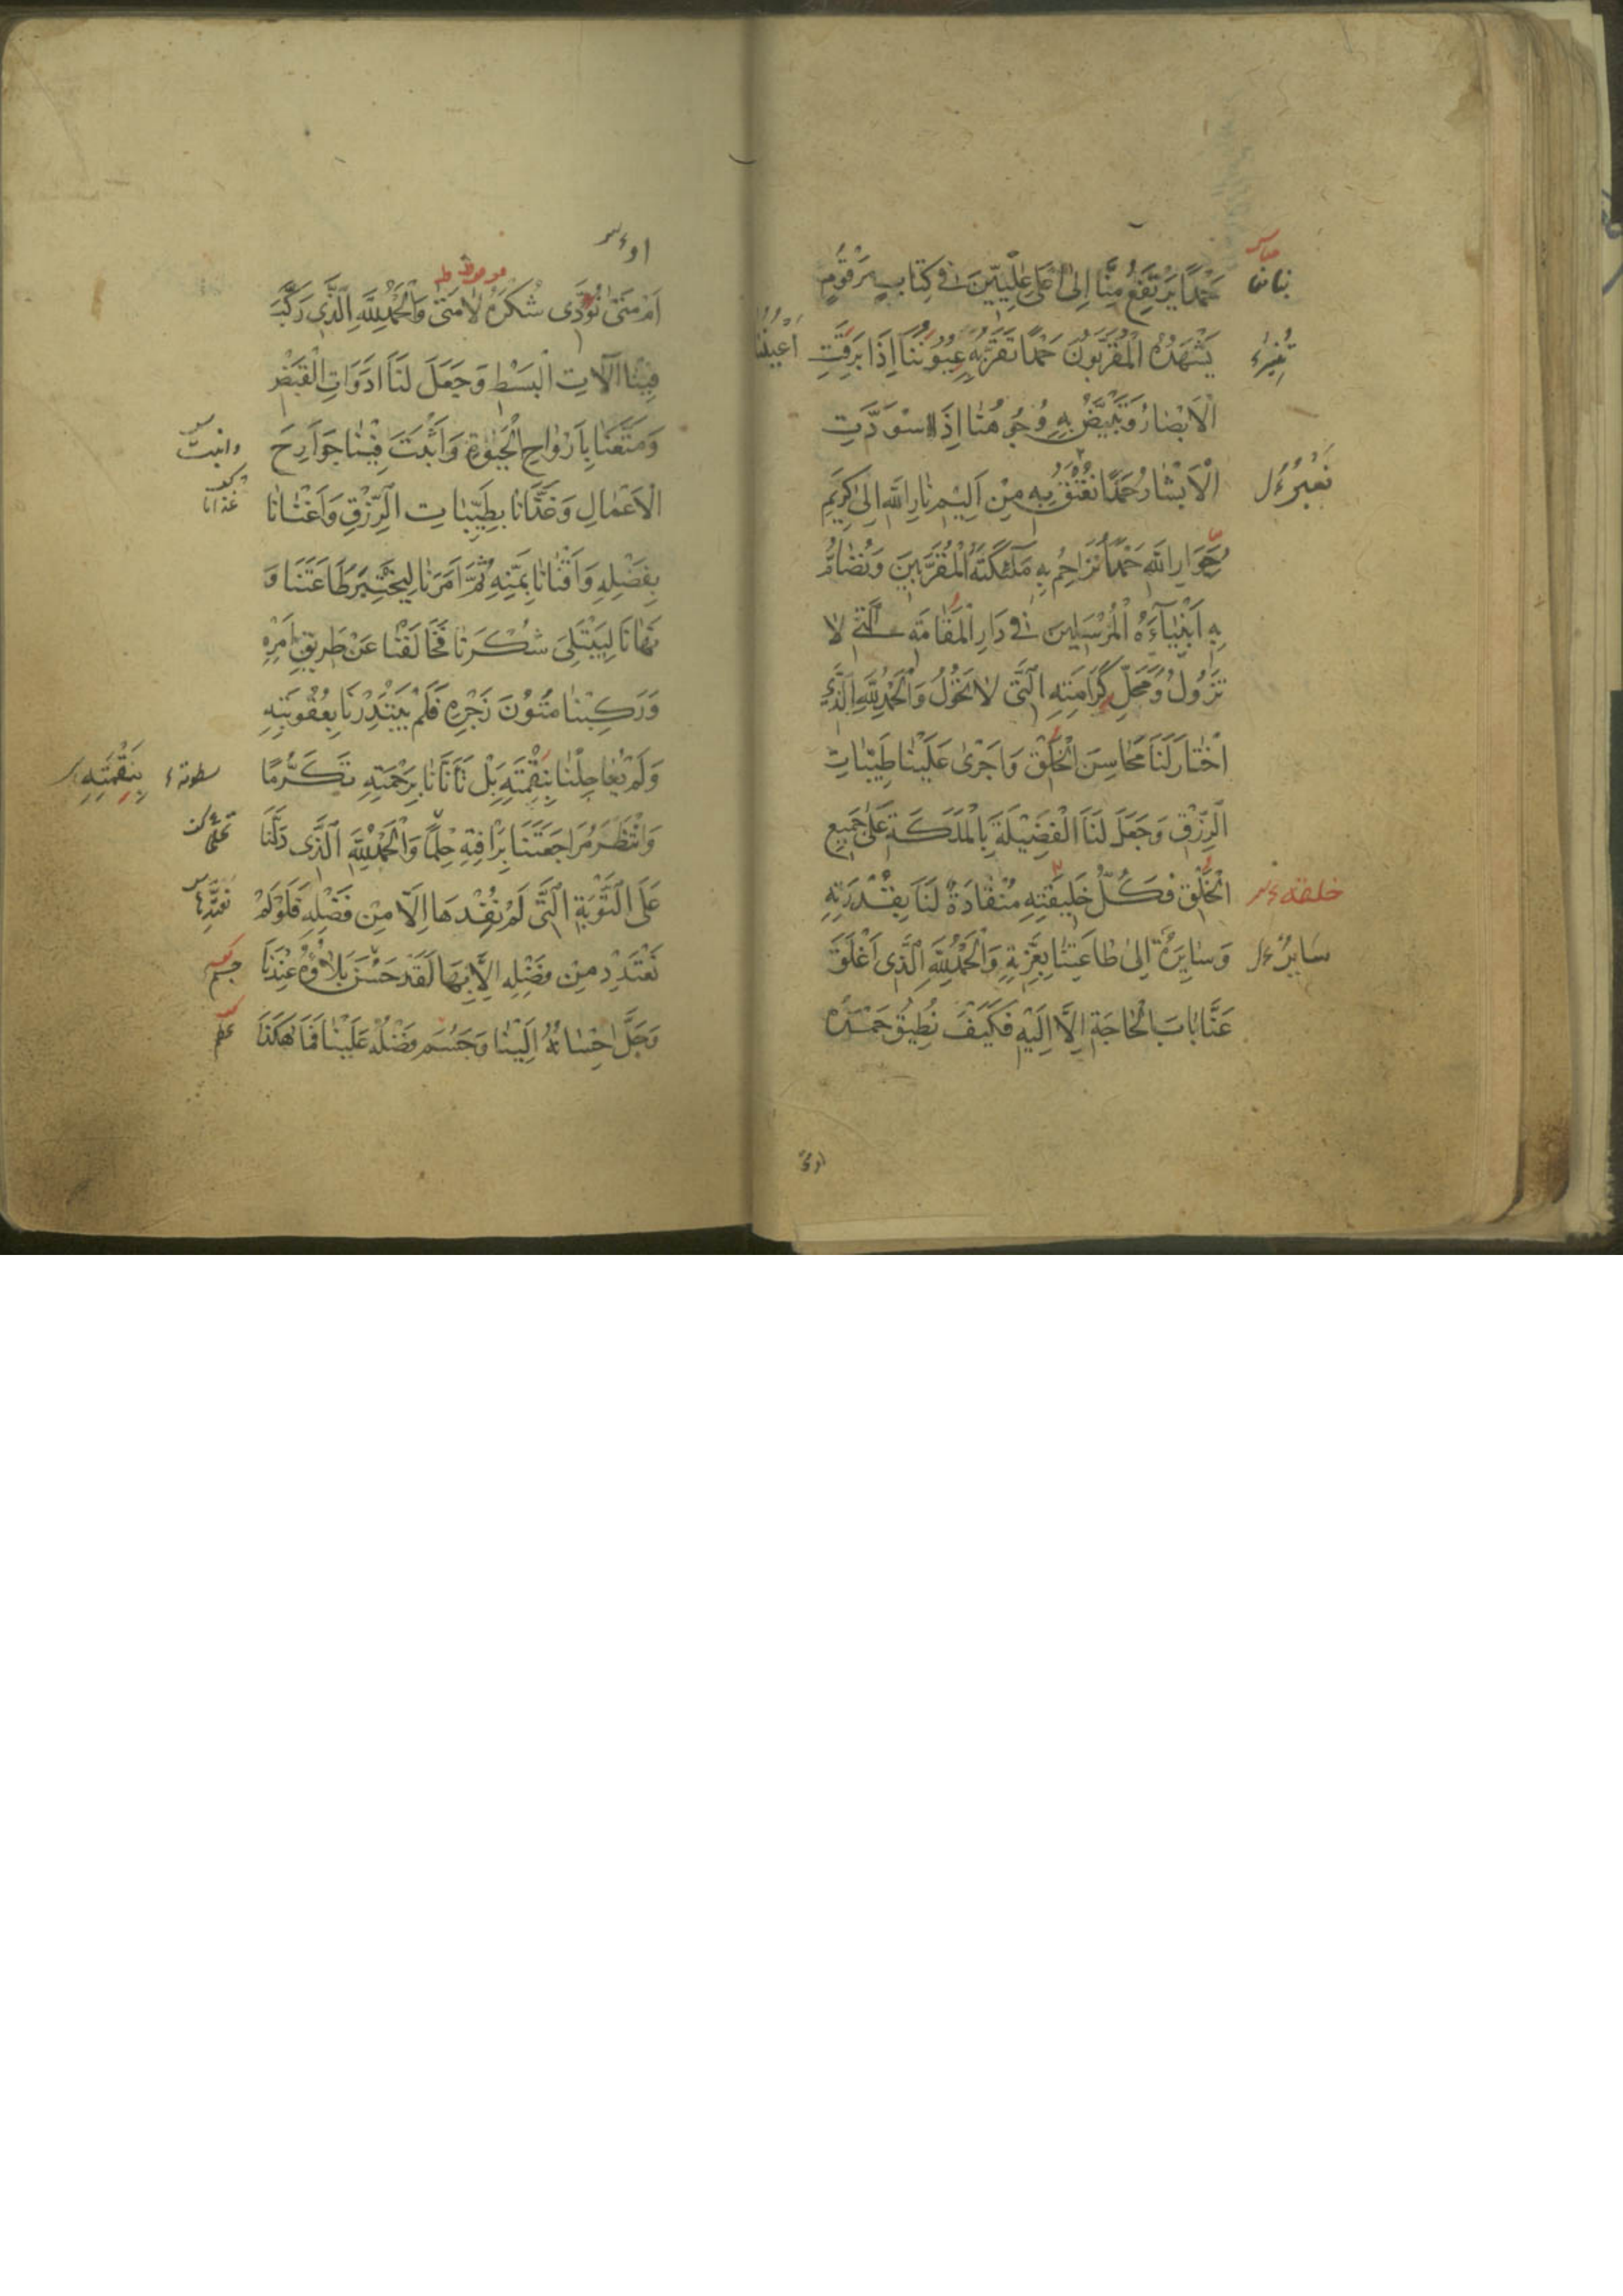 حَمْدًا يَرْتَفِعُ مِنَّا اِلىٰ اَعْلىٰ عِلِّيّينَ فى كِتابٍ مَرْقُومٍ
يَشْهَدُهُ الْمُقَرَّبُونَ حَمْدًا تَقَرُّ بِهِ عُيُونُنَا اِذَا بَرِقَتِ
اَعْيُنُنَا
الْاَبْصَارُ وَتَبْيَضُّ بِهِ وُجُوهُنَا اِذَا اسْوَدَّتِ
الْاَبْشَارُ حَمْدًا نُعْتَقُ بِهِ مِنْ اَلِيمِ نَارِ اللهِ اِلىٰ كَرِيمِ
جِوَارِ اللهِ حَمْدًا نُزَاحِمُ بِهِ مَلٰئِكَتَهُ الْمُقَرَّبينَ وَنُضَامُّ
بِهِ اَنْبِيَآءَهُ الْمُرْسَلِينَ فى دَارِ الْمُقَامَةِ الَّتى لا
تَزُولُ وَمَحَلِّ كَرَامَتِهِ الَّتى لا تَحُولُ وَالْحَمْدُ لِلّٰهِ الَّذى
اخْتَارَ لَنَا مَحَاسِنَ الْخَلْقِ وَاَجْرىٰ عَلَيْنَا طَيِّبَاتِ
الرِّزْقِ وَجَعَلَ لَنَا الْفَضِيلَةَ بِالْمَلَكَةِ عَلىٰ جَمِيعِ
الْخَلْقِ فَكُلُّ خَلِيقَتِهِ مُنْقَادَةٌ لَنَا بِقُدْرَتِهِ
خلقه
وَسَايِرَةٌ اِلىٰ طَاعَتِنَا بِعِزَّتِهِ وَالْحَمْدُ لِلّٰهِ الَّذى اَغْلَقَ
عَنَّا بَابَ الْحَاجَةِ اِلَّا اِلَيْهِ فَكَيْفَ نُطِيقُ حَمْدَهُ
اَمْ مَتىٰ نُؤَدّى شُكْرَهُ لا مَتىٰ وَالْحَمْدُ لِلّٰهِ الَّذى رَكَّبَ
فِينَا آلَاتِ الْبَسْطِ وَجَعَلَ لَنَا اَدَوَاتِ الْقَبْضِ
وَمَتَّعَنَا بِاَرْوَاحِ الْحَيٰوةِ وَاَثْبَتَ فِينَا جَوَارِحَ
وانبت
الْاَعْمَالِ وَغَذَّانَا بِطَيِّبَاتِ الرِّزْقِ وَاَغْنَانَا
غذانا
بِفَضْلِهِ وَاَقْنَانَا بِمَنِّهِ ثُمَّ اَمَرَنَا لِيَخْتَبِرَ طَاعَتَنَا وَ
نَهَانَا لِيَبْتَلِىَ شُكْرَنَا فَخَالَفْنَا عَنْ طَرِيقِ اَمْرِهِ
وَرَكِبْنَا مُتُونَ زَجْرِهِ فَلَمْ يَبْتَدِرْنَا بِعُقُوبَتِهِ
وَلَمْ يُعَاجِلْنَا بِنِقْمَتِهِ بَلْ تَاَنَّانَا بِرَحْمَتِهِ تَكَرُّمًا
سطوته
بِنَقِمَتِهِ
وَانْتَظَرَ مُرَاجَعَتَنَا بِرَاْفَتِهِ حِلْمًا وَالْحَمْدُ لِلّٰهِ الَّذى دَلَّنَا
عَلَى التَّوْبَةِ الَّتى لَمْ نُفِدْهَا اِلَّا مِنْ فَضْلِهِ فَلَوْ لَمْ
نَعْتَدِدْ مِنْ فَضْلِهِ اِلَّا بِهَا لَقَدْ حَسُنَ بَلَاؤُهُ عِنْدَنَا
وَجَلَّ اِحْسَانُهُ اِلَيْنَا وَجَسُمَ فَضْلُهُ عَلَيْنَا فَمَا هٰكَذَا